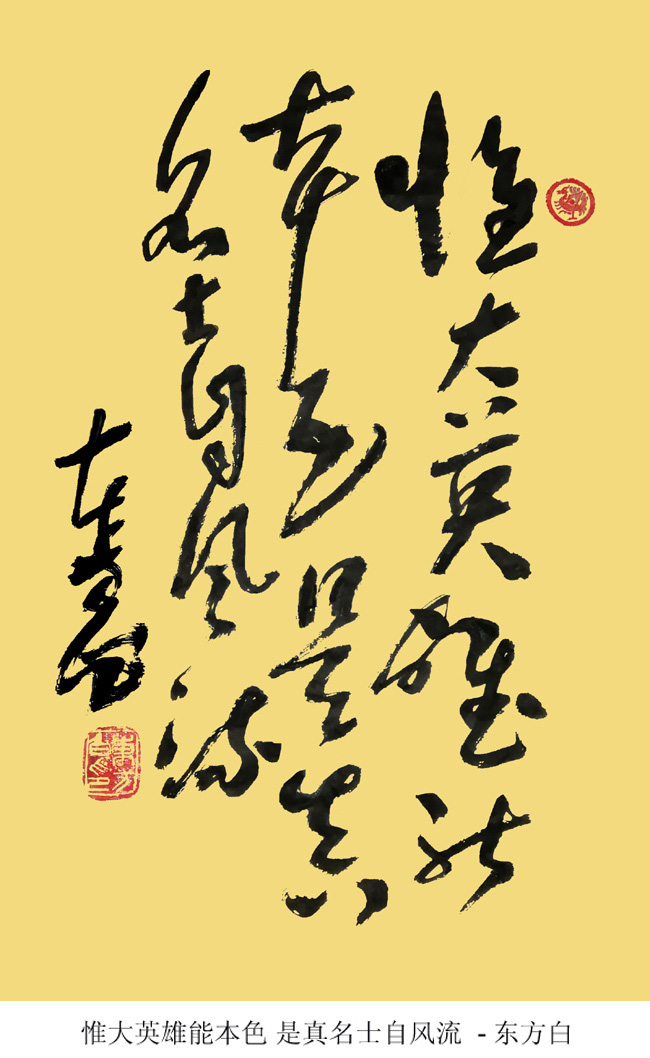 惟大英雄能
本色是真
名士自风流
东方白
惟大英雄能本色 是真名士自风流 - 东方白